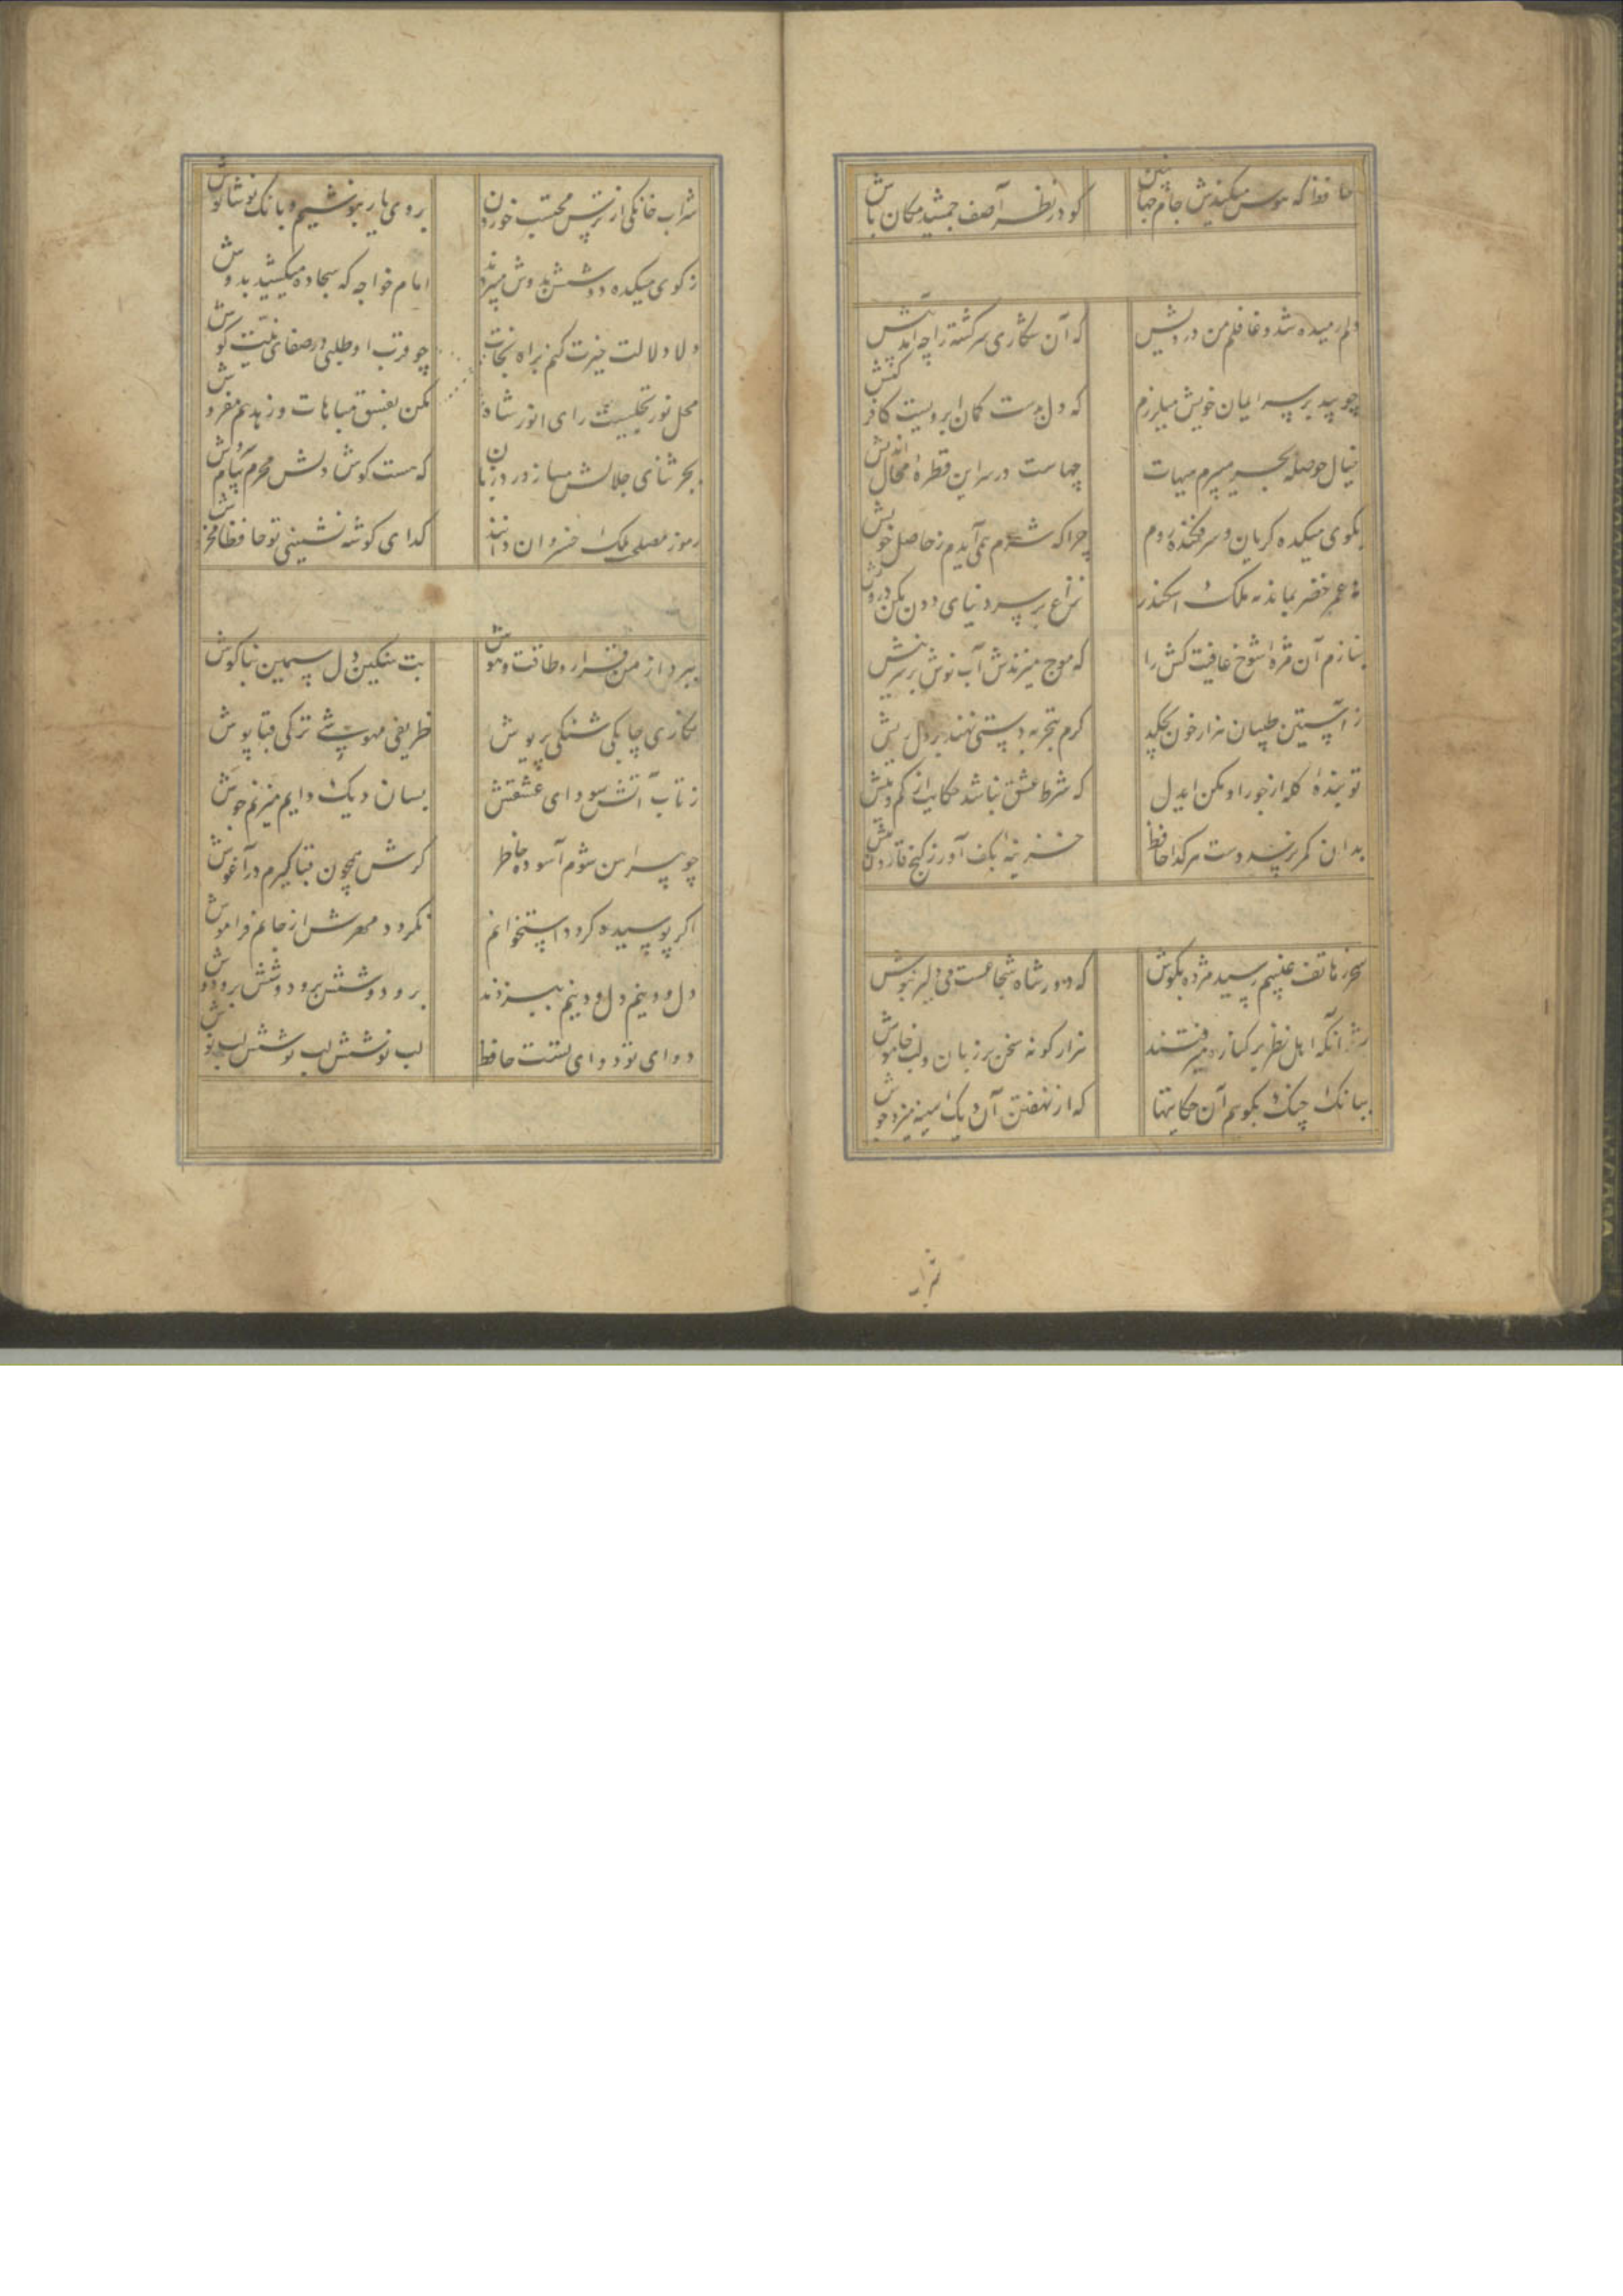 حافظ که هوس میکندش جام جهان بین
کو در نظر آصف جمشید مکان باش
دلم رمیده شد و غافلم من درویش
که آن شکاری سرکشته را چه آمد پیش
چو بید بر سر ایمان خویش میلرزم
که دل بدست کمان ابرویست کافر کیش
خیال حوصله بحر میپزم هیهات
چهاست در سر این قطرهٔ محال اندیش
بکوی میکده کریان و سرفکنده روم
چرا که شرم همی آیدم ز حاصل خویش
نه عمر خضر بماند نه ملک اسکندر
نزاع بر سر دنیای دون مکن درویش
بنازم آن مژهٔ شوخ عافیت کش را
که موج میزندش آب نوش بر سر نیش
ز آستین طبیبان هزار خون بچکد
کرم بتجربه دستی نهند بر دل ریش
تو بندهٔ کله از جور او مکن ایدل
که شرط عشق نباشد حکایت از کم و بیش
بدان کمر نرسد دست هر کدا حافظ
خزینهٔ بکف آور ز کنج قارون بیش
سحر ز هاتف غیبم رسید مژده بکوش
که دور شاه شجاعست می دلیر بنوش
شد آنکه اهل نظر بر کناره میرفتند
هزار کونه سخن بر زبان و لب خاموش
ببانک چنک بکویم آن حکایتها
که از نهفتن آن دیک سینه میزد جوش
شراب
شراب خانکی از ترس محتسب خوردن
بروی یار بنوشیم و بانک نوشانوش
ز کوی میکده دوشش بدوش میبردند
امام خواجه که سجاده میکشید بدوش
دلا دلالت خیرت کنم براه نجات
مکن بفسق مباهات و زهد هم مفروش
محل نور تجلیست رای انور شاه
چو قرب او طلبی در صفای نیت کوش
بجز ثنای جلالش مساز ورد زبان
که هست کوش دلش محرم پیام سروش
رموز مصلحت ملک خسروان دانند
کدای کوشه نشینی تو حافظا مخروش
ببرد از من قرار و طاقت و هوش
بت سنکین دل سیمین بناکوش
نکاری چابکی شنکی پریوش
ظریفی مهوشی ترکی قباپوش
ز تاب آتش سودای عشقش
بسان دیک دایم میزنم جوش
چو پیراهن شوم آسوده خاطر
کرش همچون قبا کیرم در آغوش
اکر پوسیده کردد استخوانم
نکردد مهرش از جانم فراموش
دل و دینم دل و دینم ببردند
بر و دوشش بر و دوشش بر و دوش
دوای تو دوای تست حافظ
لب نوشش لب نوشش لب نوش